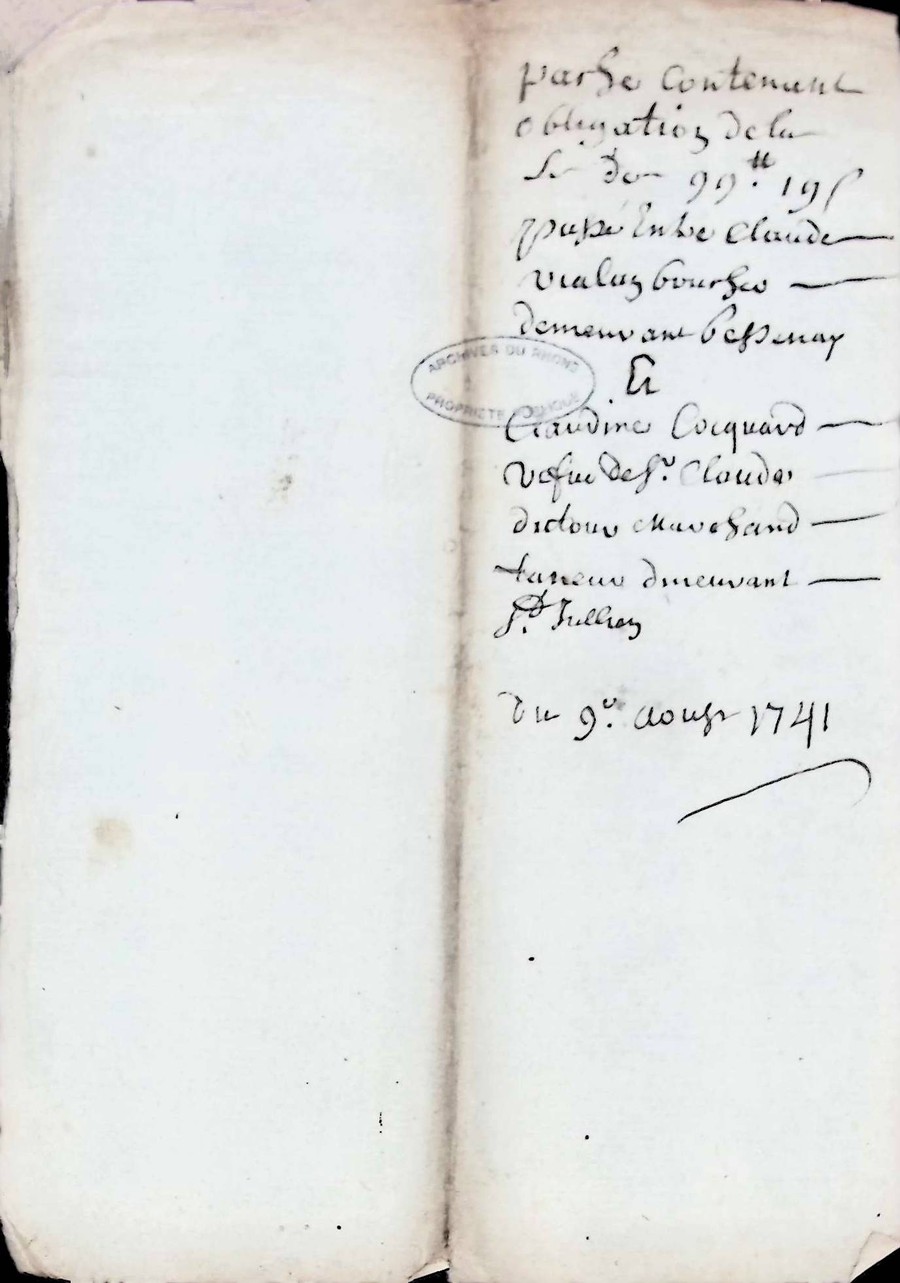 parhe contenant
obligation de la
Se de 99.tt 19 s
passé Entre Claude
vialay boucher
demeurant bessenay
Et
Claudine Cocquard
vefue de Sr. Claude
marchand
taneur dmeurant
St. Jullien
du 9e. aoust 1741
ARCHIVES DU RHONE
PROPRIETE PUBLIQUE